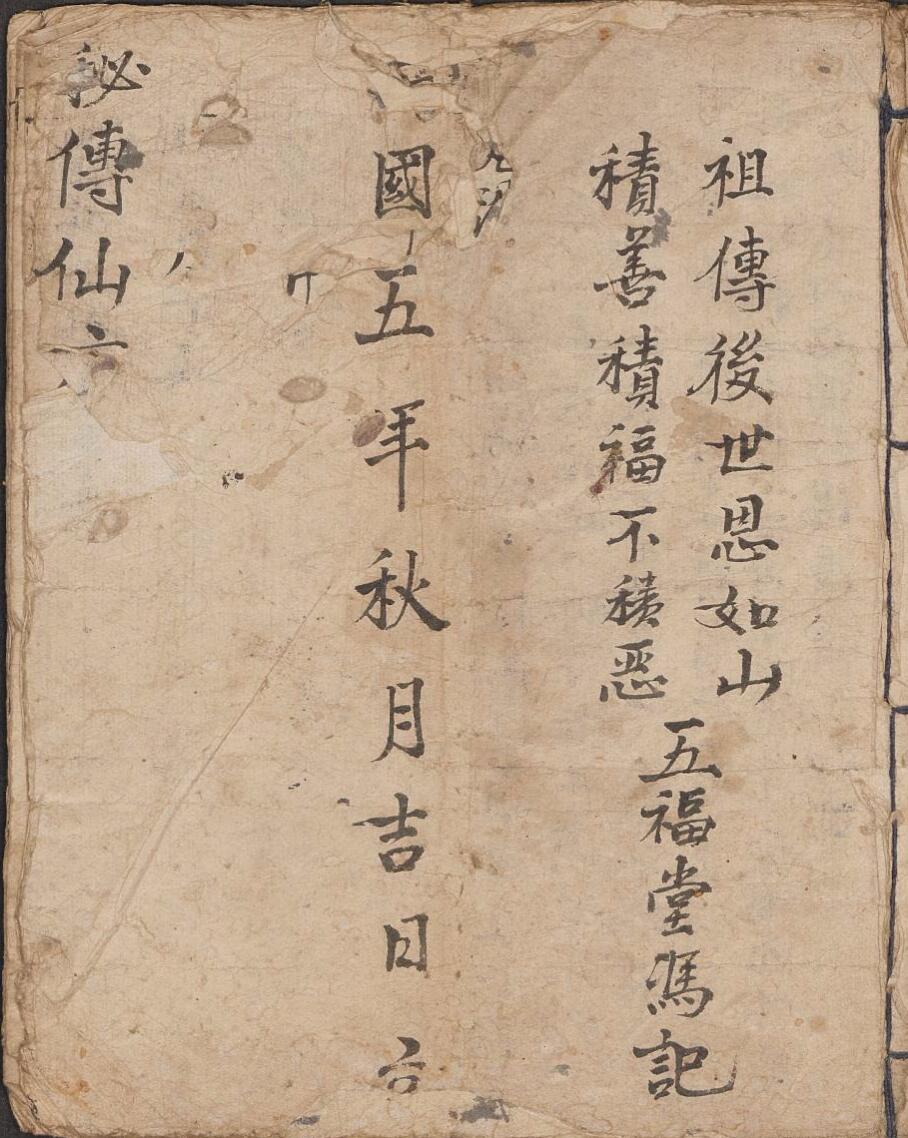 祖傳後世恩如山
積善積福不積恶
五福堂馮記
國五年秋月吉日
秘傳仙